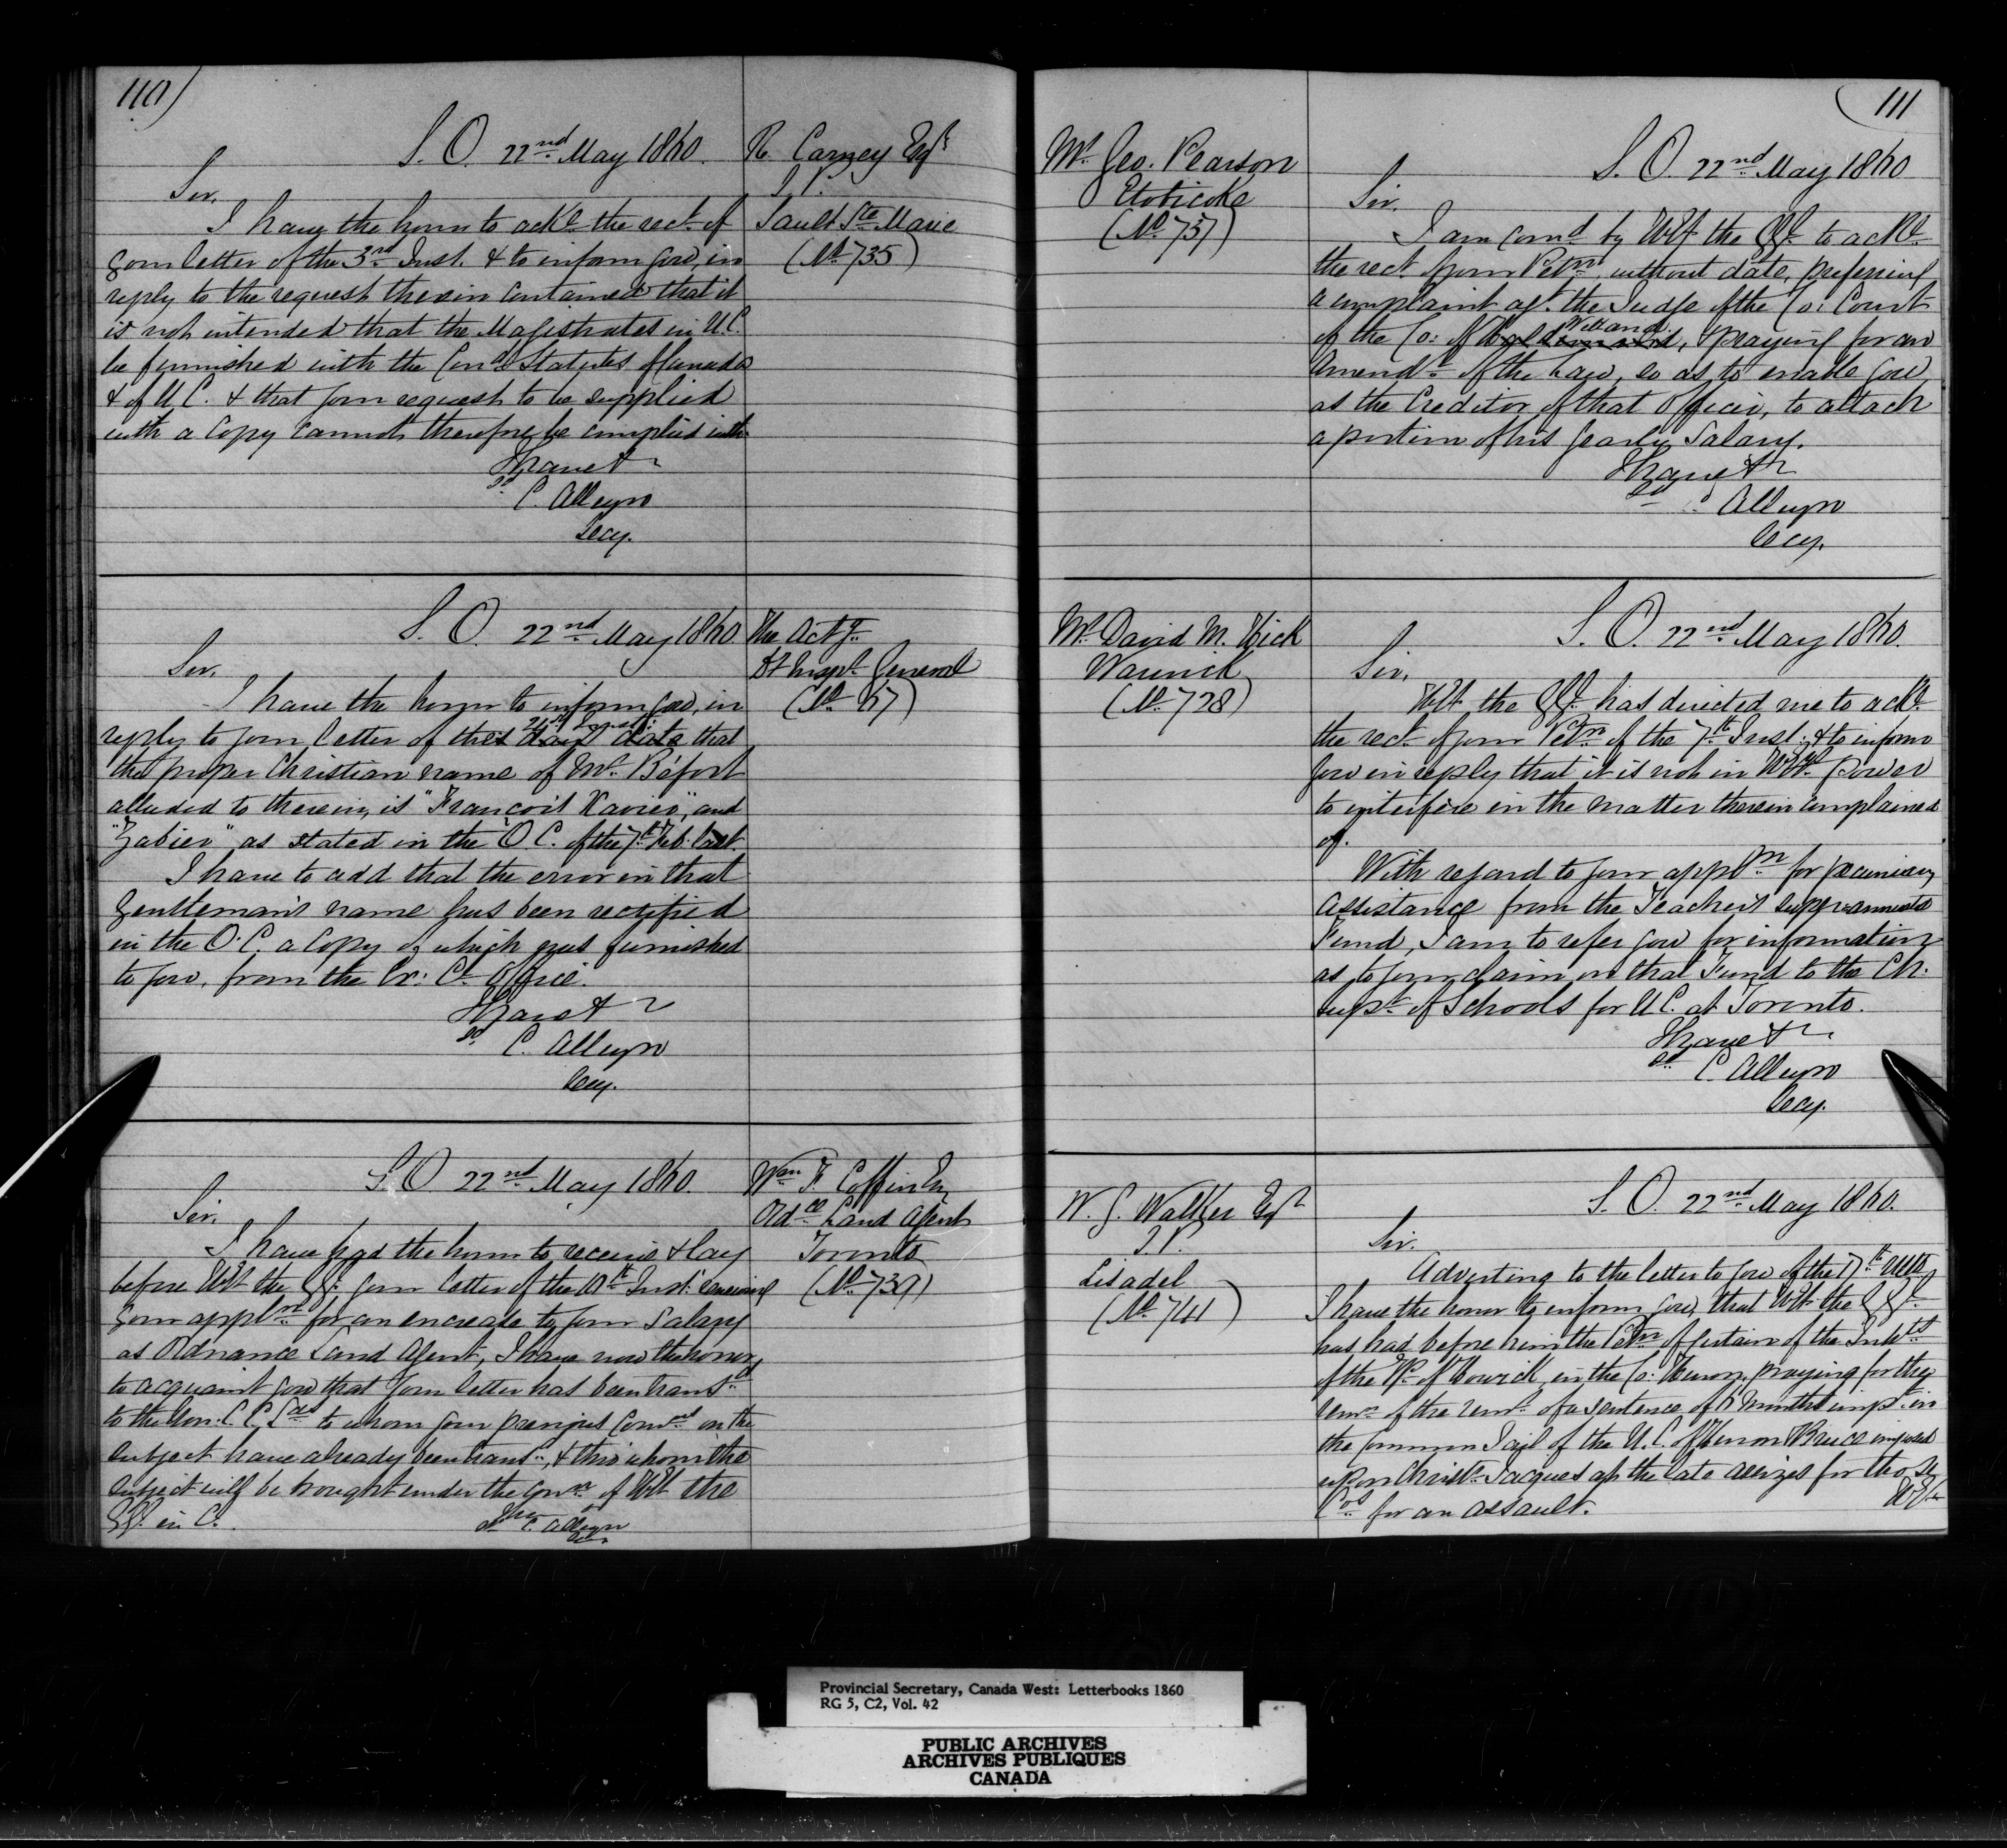 110)
S. O. 22nd May 1860.
R. Carney Esqr
J. P.
Sault Ste Marie
(No 735)
Sir,
I have the honor to ackе the rect. of
your letter of the 3rd Inst. & to inform you, in
reply to the request therein contained that it
is not intended that the Magistrates in U.C.
be furnished with the Cond Statutes of Canada
& of U.C. & that your request to be supplied
with a Copy cannot therefore be complied with.
I have &
sd
C. Alleyn
Secy.
S. O. 22nd May 1860.
The Actg
Dt Inspr General
(No 67)
Sir,
I have the honor to inform you, in
reply to your letter of the 21st Inst: that
the proper Christian name of Mr. Béfort
alluded to therein, is "Francois Xavier", and
"Zabier" as stated in the O.C. of the 7th Feb. last.
I have to add that the error in that
Gentleman's name has been rectified
in the O.C. a Copy of which was furnished
to you, from the Ex: Cl Office.
I have &
sd
C. Alleyn
Secy.
S. O. 22nd May 1860.
Wm F. Coffin Esq
Ordce Land Agent
Toronto
(No 739)
Sir,
I have had the honor to receive & lay
before HE the GG: your letter of the Inst: renewing
your appln for an encrease to your Salary
as Ordnance Land Agent, I have now the honor
to acquaint you that your letter has been transd
to the Hon: C C Lds to whom your previous Comns on the
subject have already been transd, & thro' whom the
subject will be brought under the Conn of HE the
GG. in C.
I have
sd C. Alleyn
Secy
(111
Mr Geo. Pearson
Etobicoke
(No 737)
S. O. 22nd May 1860
Sir,
I am comd by HE the GG. to acke
the rect. of your Petn without date, preferring
a complaint agt. the Judge of the Co: Court
of the Co: of Welland, & praying for an
Amendt of the Law, so as to enable you
as the Creditor of that Officer, to attach
a portion of his yearly Salary.
I have &
sd C Alleyn
Secy.
Mr David M. Kick
Warwick
(No 728)
S. O. 22nd May 1860.
Sir,
HE the GG: has directed me to acke
the rect. of your Petn of the 7th Inst: & to inform
you in reply that it is not in HE's power
to interfere in the matter therein complained
of.
With regard to your appln for pecuniary
Assistance from the Teachers superannuated
Fund, I am to refer you for information
as to your claim on that Fund to the Ch:
Supt of Schools for U.C. at Toronto.
I have &
sd C. Alleyn
Secy.
W. G. Walker Esqr
J.P.
Lisadel
(No 741)
S. O. 22nd May 1860.
Sir.
Adverting to the letter to you of the 17th Ulto
I have the honor to inform you, that HE the GG.
has had before him the Petn of certain of the Inhts
of the Tp. of Howick, in the Co: Huron, praying for the
remn of the remr of a sentence of 6 Months impt in
the Common Jail of the U. C. of Huron & Bruce imposed
upon Christr Jacques at the late Assizes for those
Cos for an assault.
HE
Provincial Secretary, Canada West: Letterbooks 1860
RG 5, C2, Vol. 42
PUBLIC ARCHIVES
ARCHIVES PUBLIQUES
CANADA